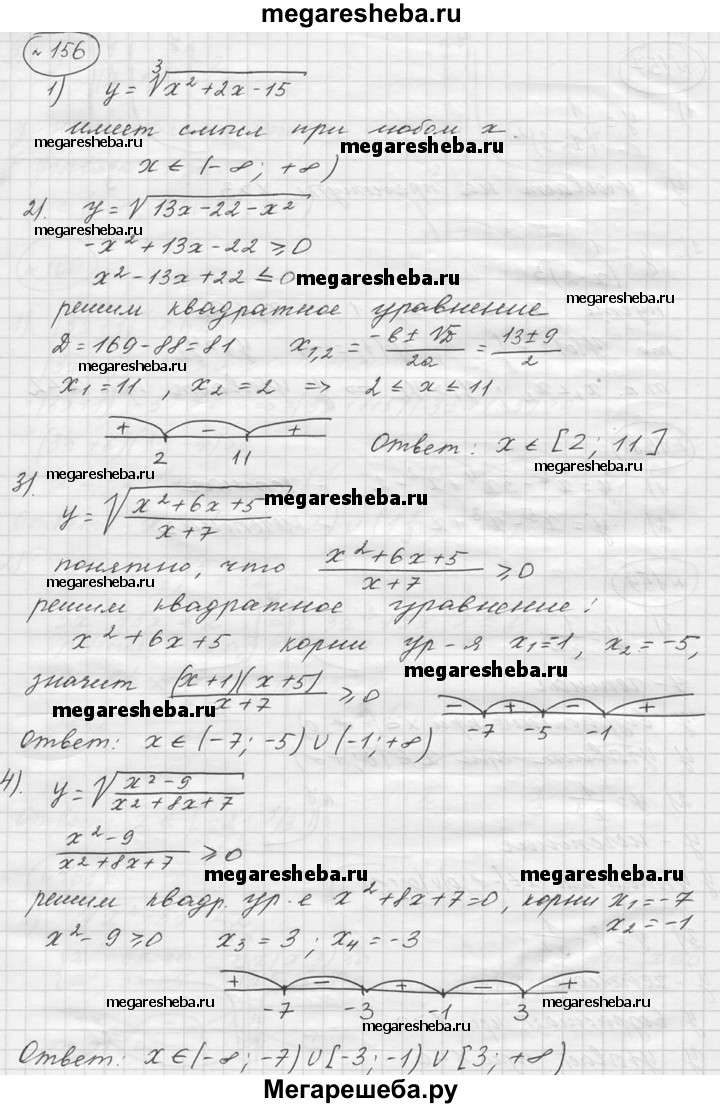 megaresheba.ru
№ 156
1) y = ∛(x² + 2x - 15)
имеет смысл при любом x.
megaresheba.ru
megaresheba.ru
x ∈ (-∞; +∞)
2). y = √(13x - 22 - x²)
megaresheba.ru
-x² + 13x - 22 ≥ 0
x² - 13x + 22 ≤ 0
megaresheba.ru
megaresheba.ru
решим квадратное уравнение
D = 169 - 88 = 81 x₁,₂ = (-b ± √D)/2a = (13 ± 9)/2
megaresheba.ru
x₁ = 11, x₂ = 2 => 2 ≤ x ≤ 11
+ - +
2 11
Ответ: x ∈ [2; 11]
megaresheba.ru
megaresheba.ru
3). y = √((x² + 6x + 5)/(x + 7))
megaresheba.ru
понятно, что (x² + 6x + 5)/(x + 7) ≥ 0
megaresheba.ru
решим квадратное уравнение:
x² + 6x + 5 корни ур-я x₁ = -1, x₂ = -5,
megaresheba.ru
значит ((x + 1)(x + 5))/(x + 7) ≥ 0
megaresheba.ru
- + - +
-7 -5 -1
Ответ: x ∈ (-7; -5) ∪ (-1; +∞)
4). y = √((x² - 9)/(x² + 8x + 7))
(x² - 9)/(x² + 8x + 7) ≥ 0
megaresheba.ru
megaresheba.ru
решим квадр. ур-е x² + 8x + 7 = 0, корни x₁ = -7
x₂ = -1
x² - 9 ≥ 0 x₃ = 3; x₄ = -3
+ - + - +
-7 -3 -1 3
megaresheba.ru
megaresheba.ru
megaresheba.ru
Ответ: x ∈ (-∞; -7) ∪ [-3; -1) ∪ [3; +∞)
Мегарешеба.ру